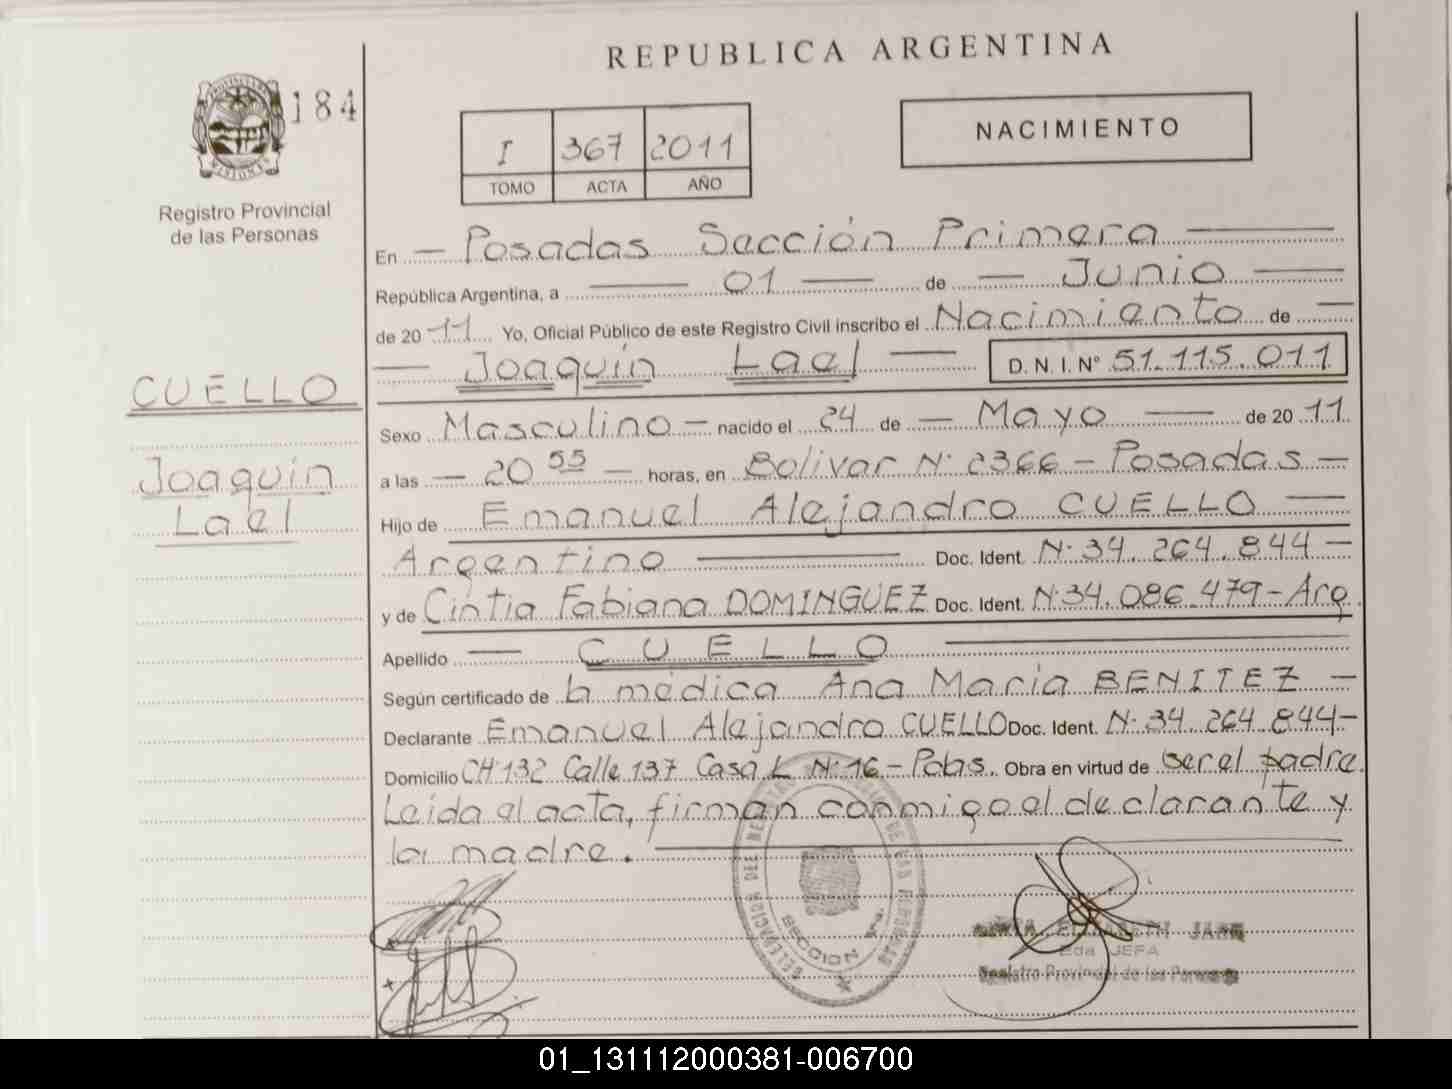 REPUBLICA ARGENTINA
184
NACIMIENTO
I 367 2011
TOMO ACTA AÑO
Registro Provincial
de las Personas
En — Posadas Sección Primera —
República Argentina, a — 01 — de — Junio —
de 2011 Yo, Oficial Público de este Registro Civil inscribo el Nacimiento de —
— Joaquín Lael — D. N. I. N° 51.115.011
CUELLO
Sexo Masculino — nacido el 24 de — Mayo — de 2011
Joaquín
a las — 20 55 — horas, en Bolívar N° 2366 — Posadas —
Lael
Hijo de Emanuel Alejandro CUELLO —
Argentino — Doc. Ident. N° 34.264.844 —
y de Cintia Fabiana DOMINGUEZ Doc. Ident. N° 34.086.479 - Arg.
Apellido — CUELLO —
Según certificado de la médica Ana María BENITEZ —
Declarante Emanuel Alejandro CUELLO Doc. Ident. N° 34.264.844 —
Domicilio CH 132 Calle 137 Casa L N° 16 - Pdas. Obra en virtud de ser el padre.
Leída el acta, firman conmigo el declarante y
la madre. —
DELEGACION DEL REGISTRO DE LAS PERSONAS
SECCION
JEFA
Registro Provincial de las Personas
01_131112000381-006700